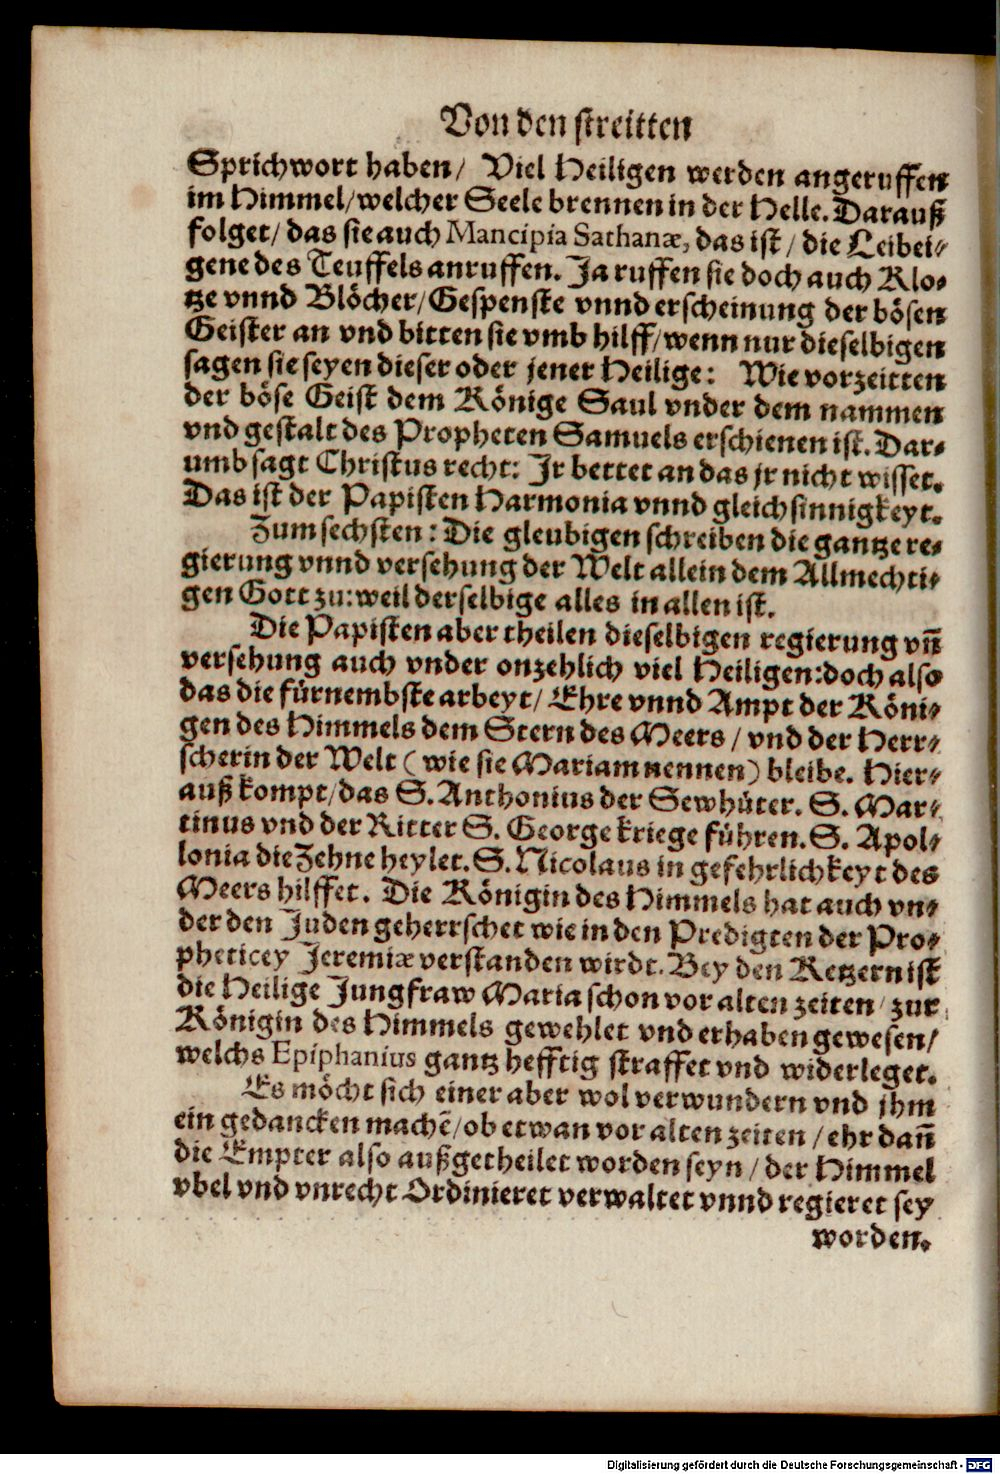 Von den streitten
Sprichwort haben/ Viel Heiligen werden angeruffen
im Himmel/welcher Seele brennen in der Helle. Darauß
folget/ das sie auch Mancipia Sathanæ, das ist / die Leibei⸗
gene des Teuffels anruffen. Ja ruffen sie doch auch Klo⸗
tze vnnd Blöcher/Gespenste vnnd erscheinung der bösen
Geister an vnd bitten sie vmb hilff/wenn nur dieselbigen
sagen sie seyen dieser oder jener Heilige: Wie vorzeitten
der böse Geist dem Könige Saul vnder dem nammen
vnd gestalt des Propheten Samuels erschienen ist. Dar⸗
umb sagt Christus recht: Jr bettet an das jr nicht wisset.
Das ist der Papisten Harmonia vnnd gleichsinnigkeyt.
Zum sechsten: Die gleubigen schreiben die gantze re⸗
gierung vnnd versehung der Welt allein dem Allmechti⸗
gen Gott zu: weil derselbige alles in allen ist.
Die Papisten aber theilen dieselbigen regierung vñ
versehung auch vnder onzehlich viel Heiligen: doch also
das die fürnembste arbeyt/ Ehre vnnd Ampt der Köni⸗
gen des Himmels dem Stern des Meers / vnd der Herr⸗
scherin der Welt ( wie sie Mariam nennen) bleibe. Hier⸗
auß kompt/das S. Anthonius der Sewhüter. S. Mar⸗
tinus vnd der Ritter S. George kriege führen. S. Apol⸗
lonia die Zehne heylet. S. Nicolaus in gefehrlichkeyt des
Meers hilffet. Die Königin des Himmels hat auch vn⸗
der den Juden geherrschet wie in den Predigten der Pro⸗
pheticey Jeremiæ verstanden wirdt. Bey den Ketzern ist
die Heilige Jungfraw Maria schon vor alten zeiten / zur
Königin des Himmels gewehlet vnd erhaben gewesen/
welchs Epiphanius gantz hefftig straffet vnd widerleget.
Es möcht sich einer aber wol verwundern vnd jhm
ein gedancken machẽ/ob etwan vor alten zeiten / ehr dañ
die Empter also außgetheilet worden seyn / der Himmel
vbel vnd vnrecht Ordinieret verwaltet vnnd regieret sey
worden.
Digitalisierung gefördert durch die Deutsche Forschungsgemeinschaft - DFG